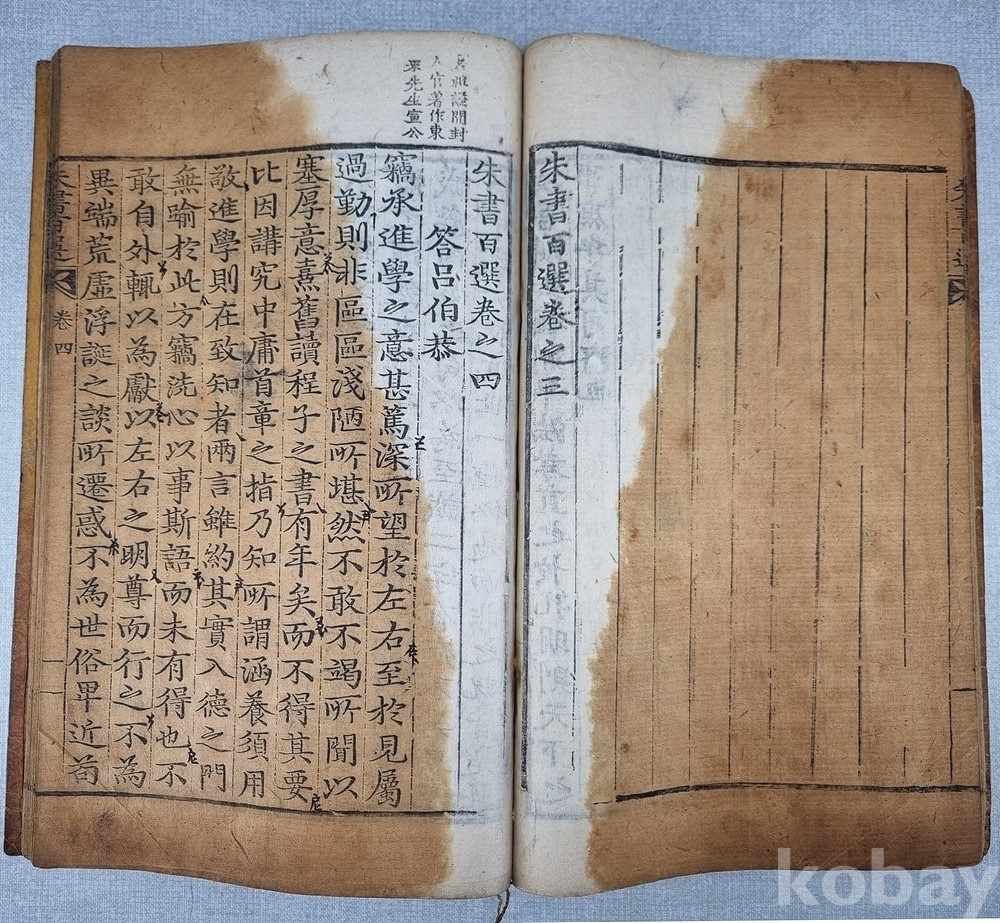 朱書百選卷之三
東先生宣公
官著作
開封
朱書百選卷之四
答呂伯恭
竊承進學之意甚篤深所望於左右至於見屬
過勤則非區區淺陋所堪然不敢不竭所聞以
塞厚意熹舊讀程子之書有年矣而不得其要
比因講究中庸首章之指乃知所謂涵養須用
敬進學則在致知者兩言雖約其實入德之門
無喻於此方竊洗心以事斯語而未有得也不
敢自外輒以為獻以左右之明尊而行之不為
異端荒虛浮誕之談所遷惑不為世俗卑近苟
朱書百選
卷四
一
kobay